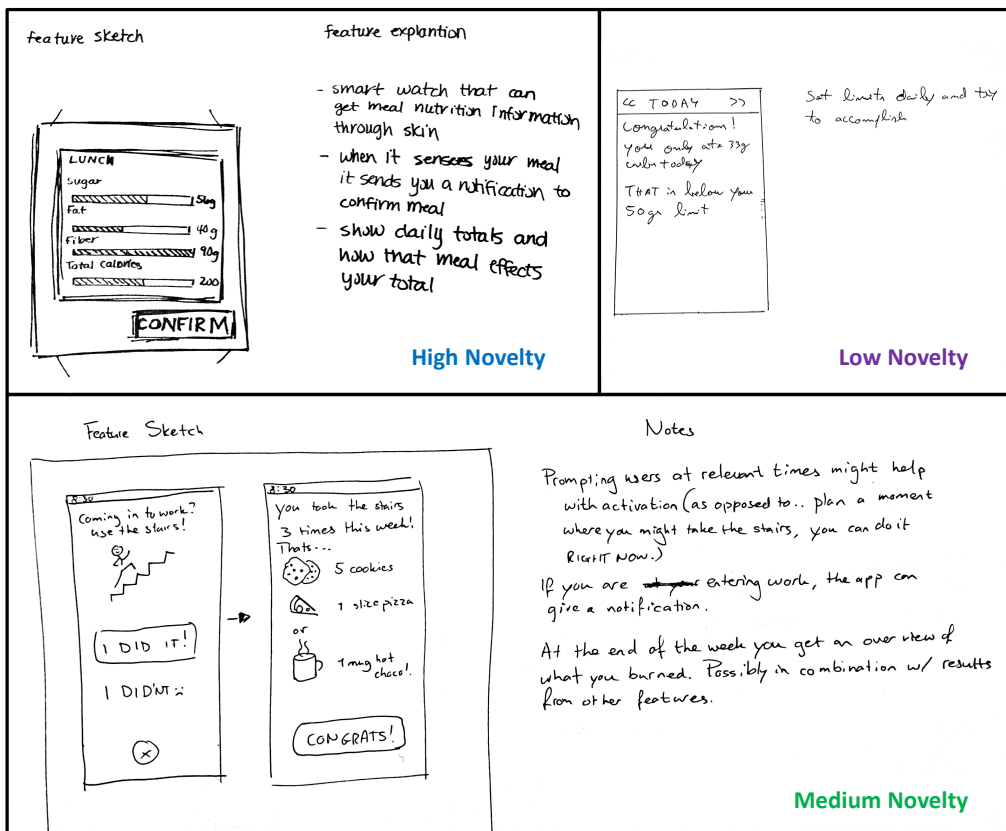 feature sketch
LUNCH
sugar
56g
Fat
40g
Fiber
90g
Total calories
200
CONFIRM
feature explantion
- smart watch that can
get meal nutrition Information
through skin
- when it senses your meal
it sends you a notification to
confirm meal
- show daily totals and
how that meal effects
your total
High Novelty
<< TODAY >>
Congratulation!
you only ate 33g
carbs today
THAT is below your
50gr limit
Set limits daily and try
to accomplish
Low Novelty
Feature Sketch
8:30
Coming in to work?
use the stairs!
I DID IT!
I DID'NT
8:30
you took the stairs
3 times this week!
Thats...
5 cookies
1 slice pizza
or
1 mug hot
choco!.
CONGRATS!
Notes
Prompting users at relevant times might help
with activation (as opposed to.. plan a moment
where you might take the stairs, you can do it
RIGHT NOW.)
If you are entering work, the app can
give a notification.
At the end of the week you get an over view of
what you burned. Possibly in combination w/ results
from other features.
Medium Novelty